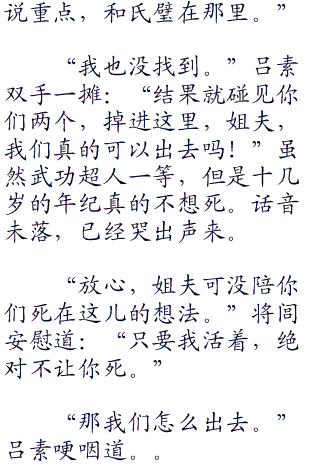 说重点，和氏璧在那里。”
“我也没找到。”吕素
双手一摊：“结果就碰见你
们两个，掉进这里，姐夫，
我们真的可以出去吗！”虽
然武功超人一等，但是十几
岁的年纪真的不想死。话音
未落，已经哭出声来。
“放心，姐夫可没陪你
们死在这儿的想法。”将闾
安慰道：“只要我活着，绝
对不让你死。”
“那我们怎么出去。”
吕素哽咽道。。